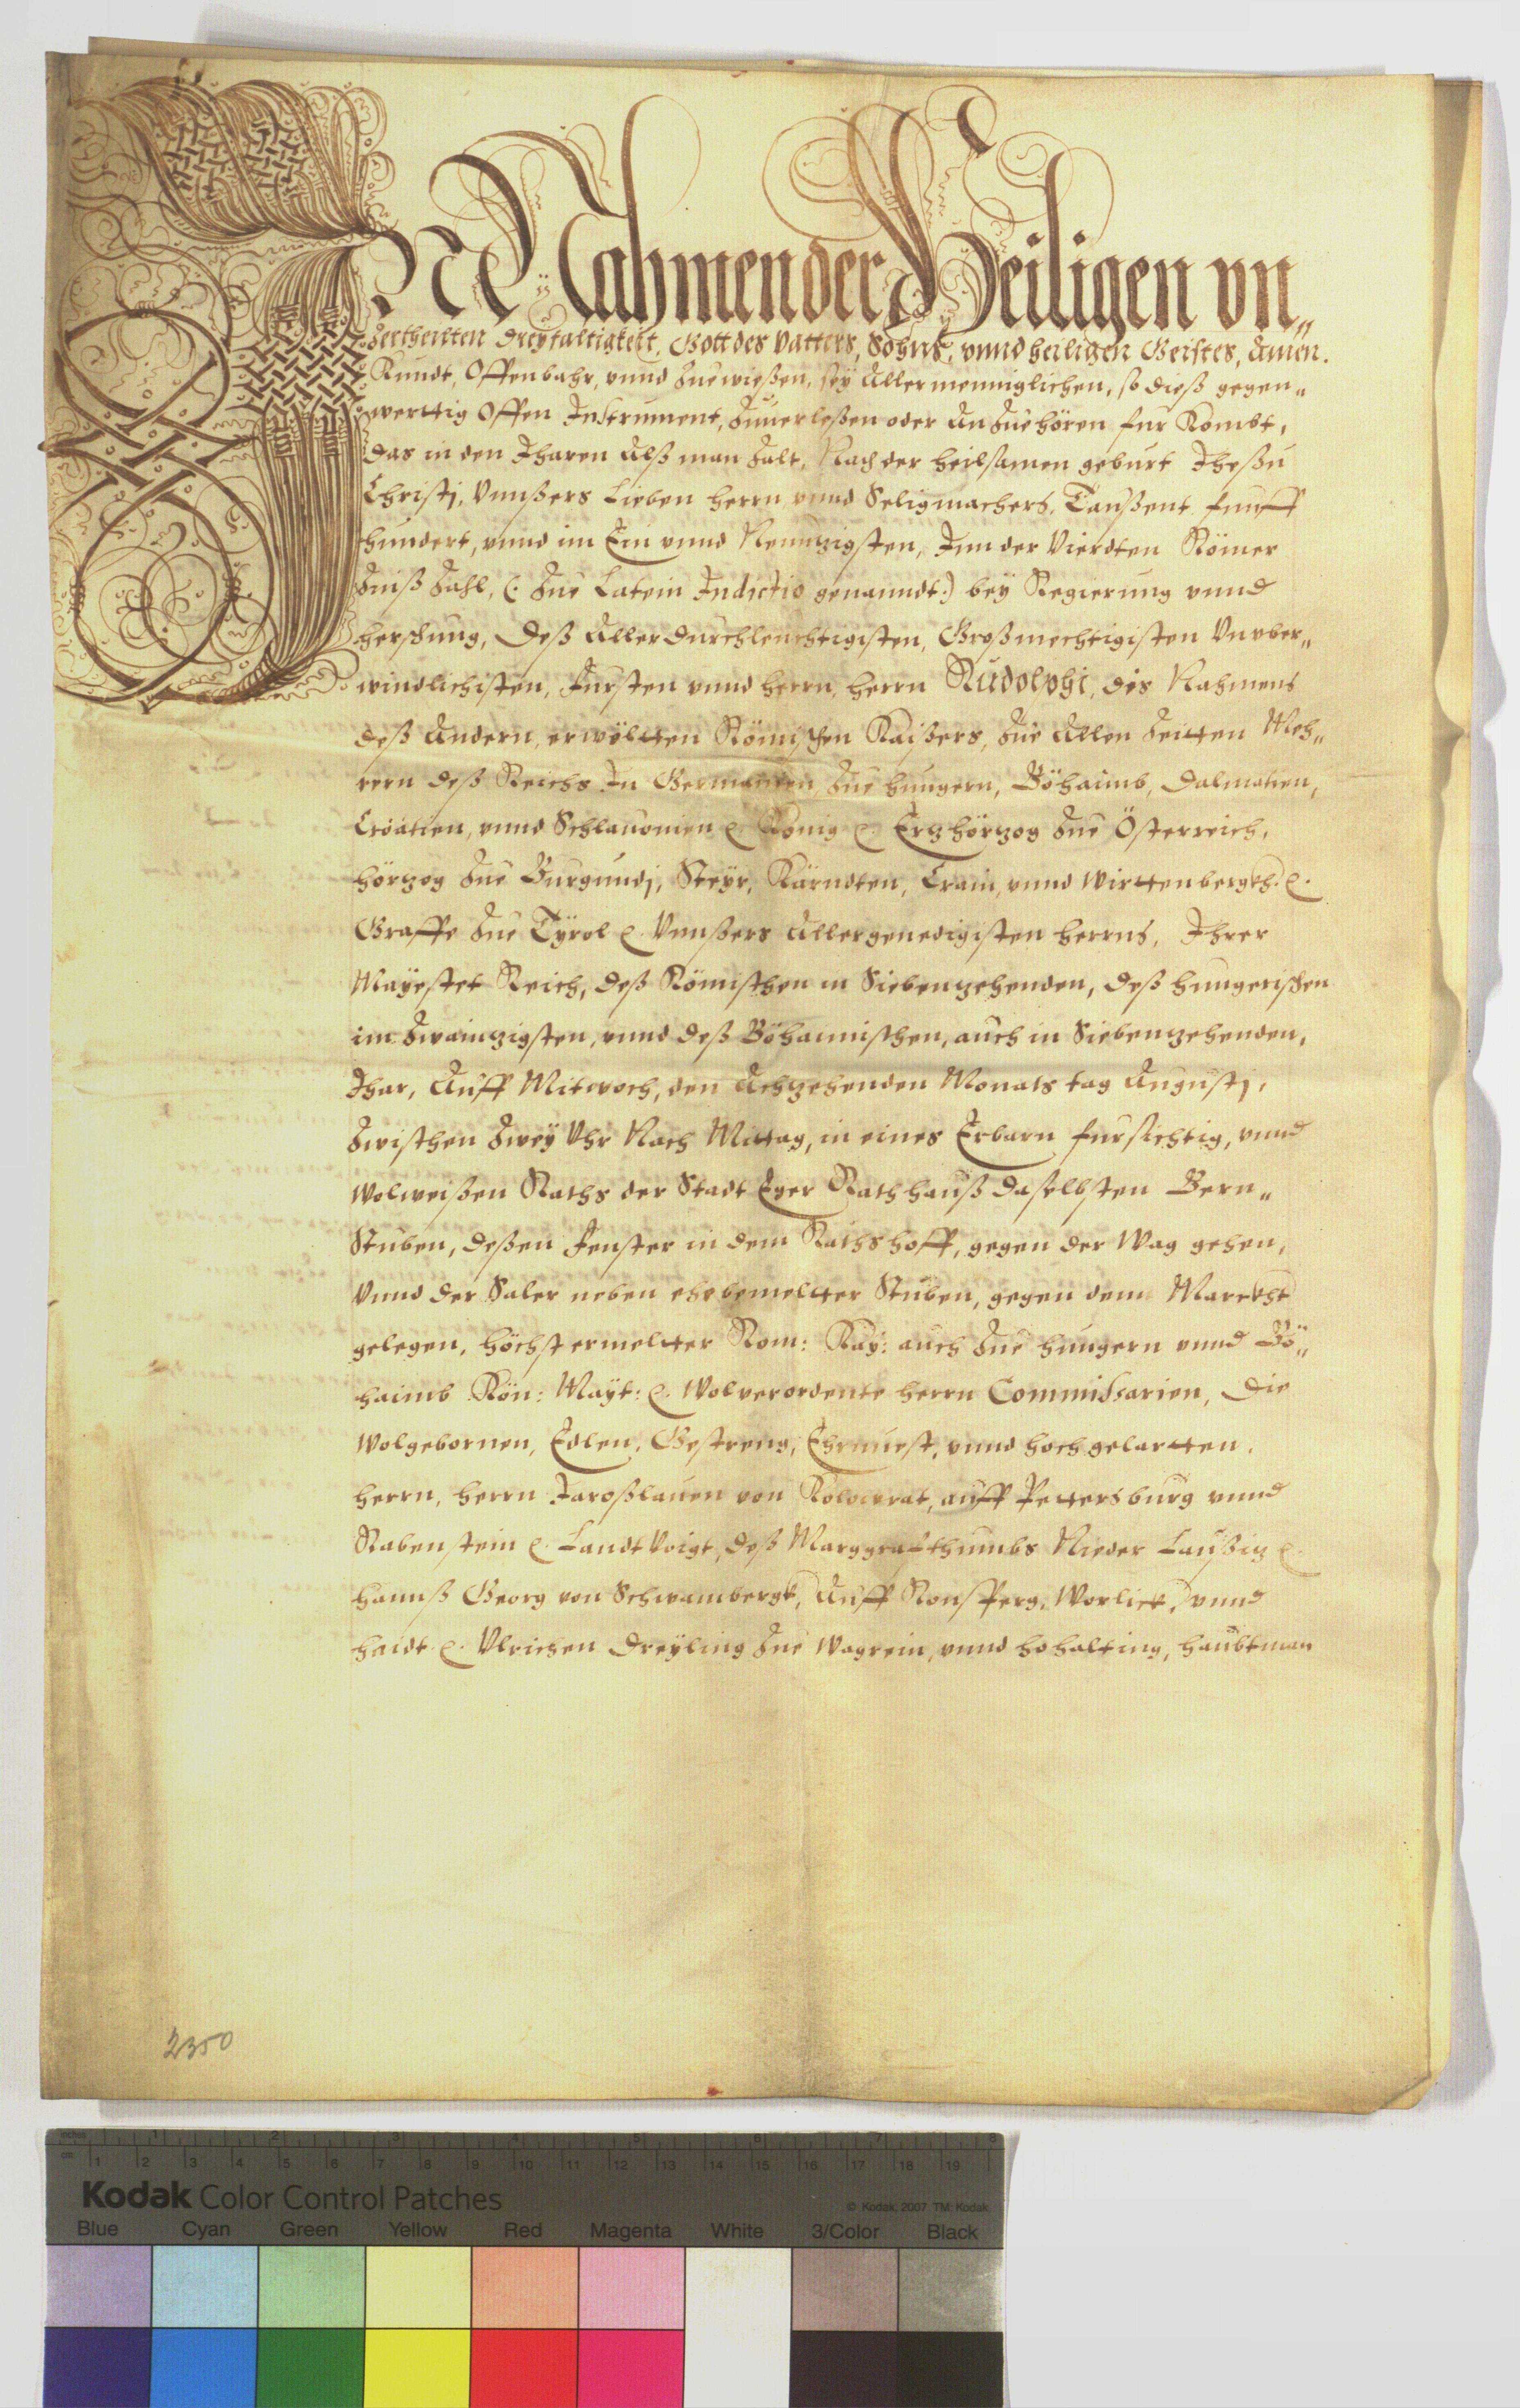 IM Nahmen der Heiligen vn„
Zertheilten Dreyfaltigkeit, Gott des Vatters, Sohns, vnnd heiligen Geistes, Amen.
Kundt, Offenbahr, vnnd Zuewießen, sey Allermenniglichen, so dieß gegen„
werttig Offen Instrument, Zuuerleßen oder An Zuehören fur Kombt,
Das in den Jharen Alß man Zalt, Nach der heilsamen geburt Jheßu
Christj, Vnnßers Lieben herrn vnnd Seligmachers, Taußent funff
hundert, vnnd im Ein vnnd Neuntzigsten, Inn der Vierdten Römer
Zinß Zahl, (: Zue Latein Indictio genanndt:) bey Regierung vnnd
herschung, Deß Allerdurchleuchtigisten, Großmechtigisten Vnvber„
windlichisten, Fursten vnnd herrn, herrn Rudolphi, des Nahmens
deß Andern, erwöltten Römischen Kaißers, Zue Allen Zeitten Meh„
rern deß Reichs In Germanien, Zue hungern, Böhaimb, Dalmatien,
Croatien, vnnd Schlauonien ꝛc. König ꝛc. Ertzhörtzog Zue Österreich,
hörtzog Zue Burgundj, Steyr, Kärndten, Crain, vnnd Wirttenbergkh. ꝛc.
Graffe Zue Tyrol ꝛc. Vnnßers Allergenedigisten herrns, Ihrer
Mayestet Reich, deß Römischen in Siebentzehenden, deß hungerischen
im Zwaintzigsten, vnnd deß Böhamischen, auch in Siebentzehenden,
Jhar, Auff Mitwoch, den Achtzehenden Monats tag Augustj,
Zwischen Zwey Vhr Nach Mittag, in eines Erbarn fursichtig, vnnd
Wolweißen Raths der Stadt Eger Rathhauß daselbsten Bern„
Stuben, deßen Fenster in dem Rathshoff, gegen der Wag gehen,
Vnnd der Saler neben ehebemeltter Stuben, gegen dem Marckht
gelegen, höchst ermeltter Rom: Kay: auch Zue hungern vnnd Bö„
haimb Kön: Mayt: ꝛc. Wolverordente herrn Commissarien, Die
Wolgebornen, Edlen, Gestreng, Ehrnuest, vnnd hochgelartten,
herrn, herrn Jaroßlauen von Kolowrat, auff Pettersburg vnnd
Rabenstein ꝛc. LandtVoigt, deß Marggrafthumbs Nieder Laußitz ꝛc.
hannß Georg von Schwambergk, Auff Ronsperg, Worlick, vnnd
haidt ꝛc. Vlrichen Dreyling Zue Wagrein, vnnd hohalting, haubtman
2350
inches 1 2 3 4 5 6 7 8
cm 1 2 3 4 5 6 7 8 9 10 11 12 13 14 15 16 17 18 19
Kodak Color Control Patches
© Kodak, 2007 TM: Kodak
Blue Cyan Green Yellow Red Magenta White 3/Color Black